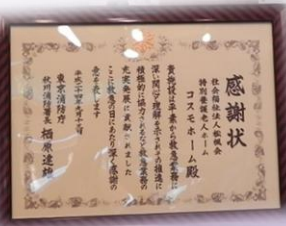 感謝状
社会福祉法人松楓会
特別養護老人ホーム
コスモホーム殿
貴施設は平素から救急業務に
深い関心と理解を示されその推進に
積極的に協力されるなど救急業務の
充実発展に貢献されました
ここに救急の日にあたり深く感謝の
意を表します
平成二十四年九月十日
東京消防庁
消防署長 栢原達雄